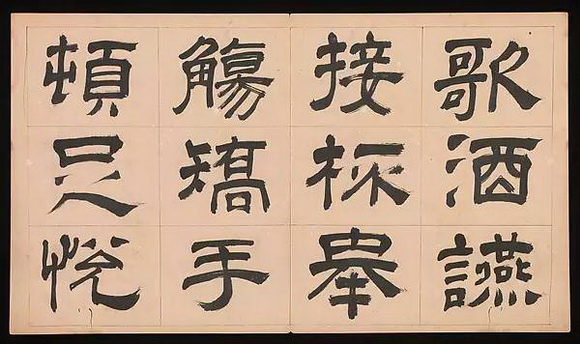 歌酒讌
接杯舉
觴矯手
頓足悅